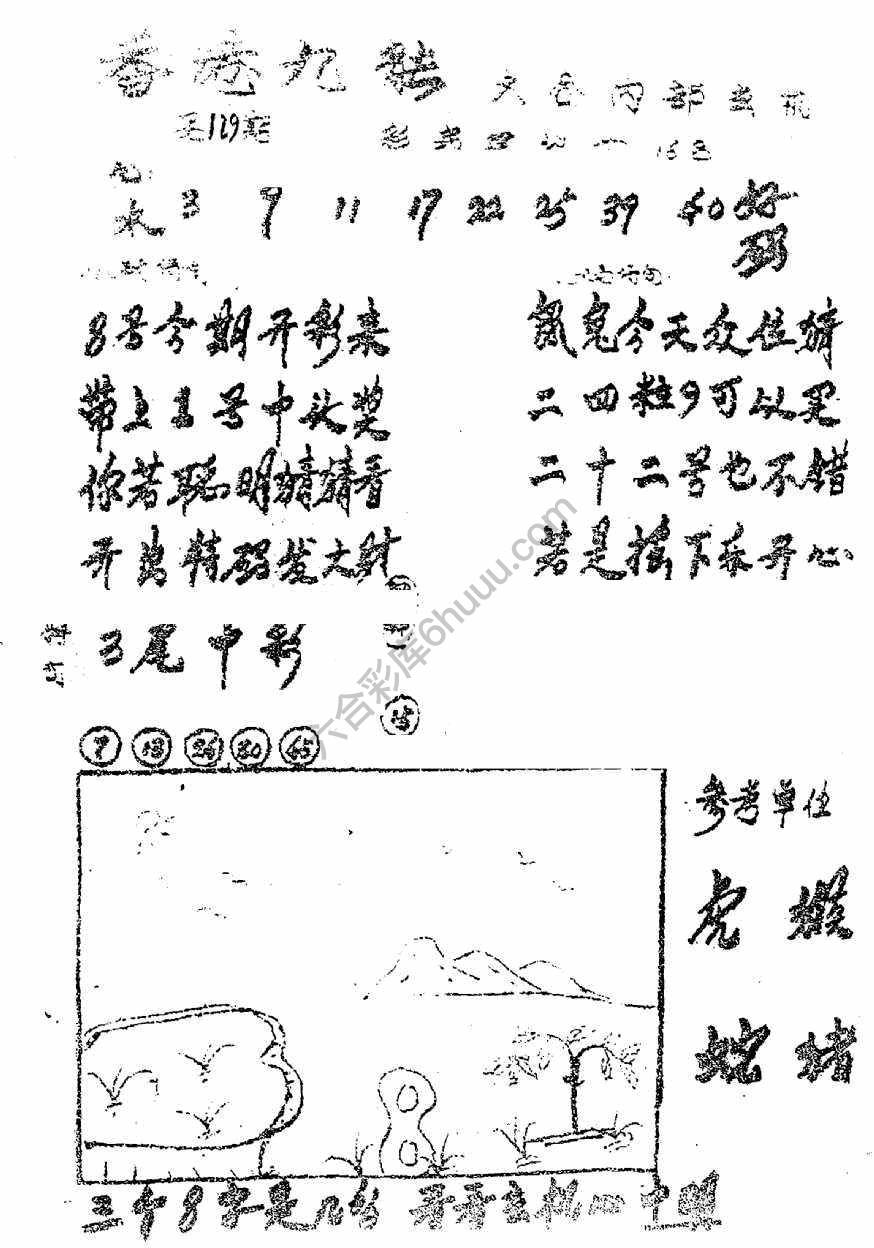 香港九龙
六合内部玄机
第129期
水 3 9 11 17 22 25 39 40 好码
8号今期开彩来
带上1号中头奖
你若聪明猜猜看
开出特码发大财
鼠兔今天众位猜
二四粒9可以买
二十二号也不错
若是摇下乐开心
3尾中彩
15
7 18 26 30 45
六合彩库6huuu.com
参考单位
虎 猴
蛇 猪
三个8字是几分 看看玄机心中明